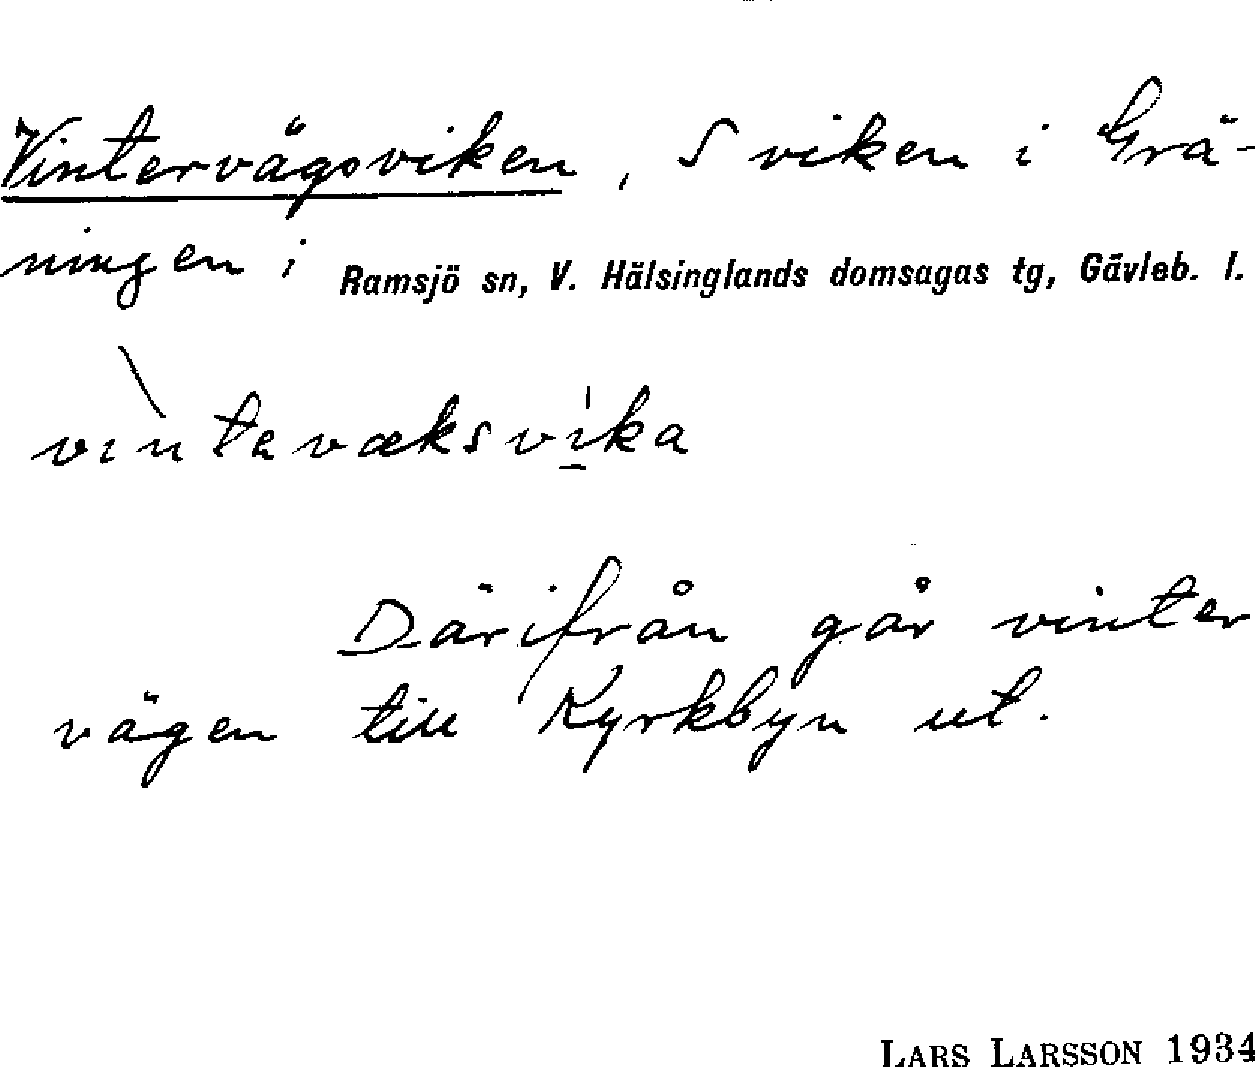 Vintervägsviken, S viken i Grä-
ningen i Ramsjö sn, V. Hälsinglands domsagas tg, Gävleb. l.
vìntavæksvi̱ka
Därifrån går vinter
vägen till Kyrkbyn ut.
LARS LARSSON 1934